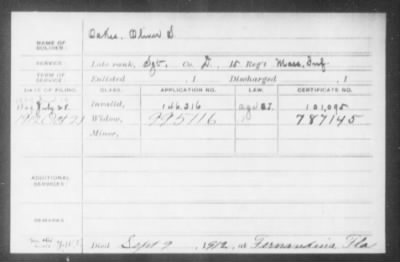 NAME OF SOLDIER: Oakes, Oliver S.
SERVICE: Late rank, Sgt., Co. D, 15 Reg't Mass. Inf
TERM OF SERVICE: Enlisted , 1 Discharged , 1
DATE OF FILING. CLASS. APPLICATION NO. LAW. CERTIFICATE NO.
Invalid, 146,216 101,095
Widow, 995116 787145
Minor,
ADDITIONAL SERVICES:
REMARKS:
Died Sept 9, 1912, at Fernandina Fla